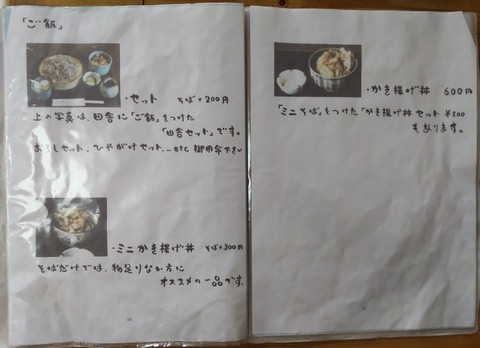 「ご飯」
・セット そば+200円
上の写真は、田舎に「ご飯」をつけた
「田舎セット」です。
おろしセット、ひやがけセット、…etc 御用命下さい
・ミニかき揚げ丼 そば+300円
そばだけでは、物足りない方に
オススメの一品です。
・かき揚げ丼 600円
「ミニそば」をつけた「かき揚げ丼セット ¥800
もあります。